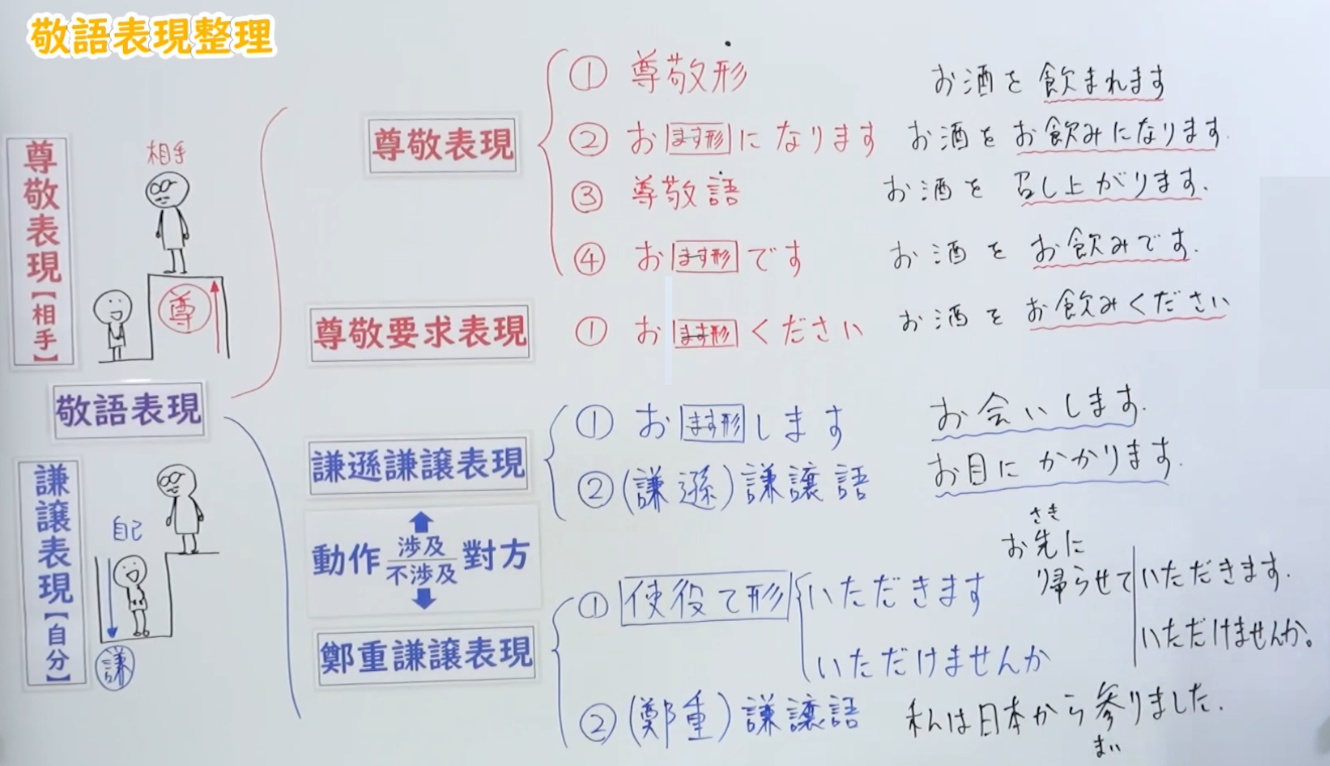 敬語表現整理
尊敬表現【相手】
相手
尊
敬語表現
謙譲表現【自分】
自己
謙
尊敬表現
① 尊敬形 お酒を飲まれます
② お ます形 になります お酒をお飲みになります.
③ 尊敬語 お酒を 召し上がります.
④ お ます形 です お酒を お飲みです.
尊敬要求表現
① お ます形 ください お酒を お飲みください
謙遜謙譲表現
① お ます形 します お会いします.
② (謙遜) 謙譲語 お目にかかります.
動作 涉及 對方
不涉及
鄭重謙譲表現
① 使役て形 いただきます
いただけませんか
さき
お先に
帰らせて いただきます.
いただけませんか。
② (鄭重) 謙譲語 私は日本から参りました.
まい